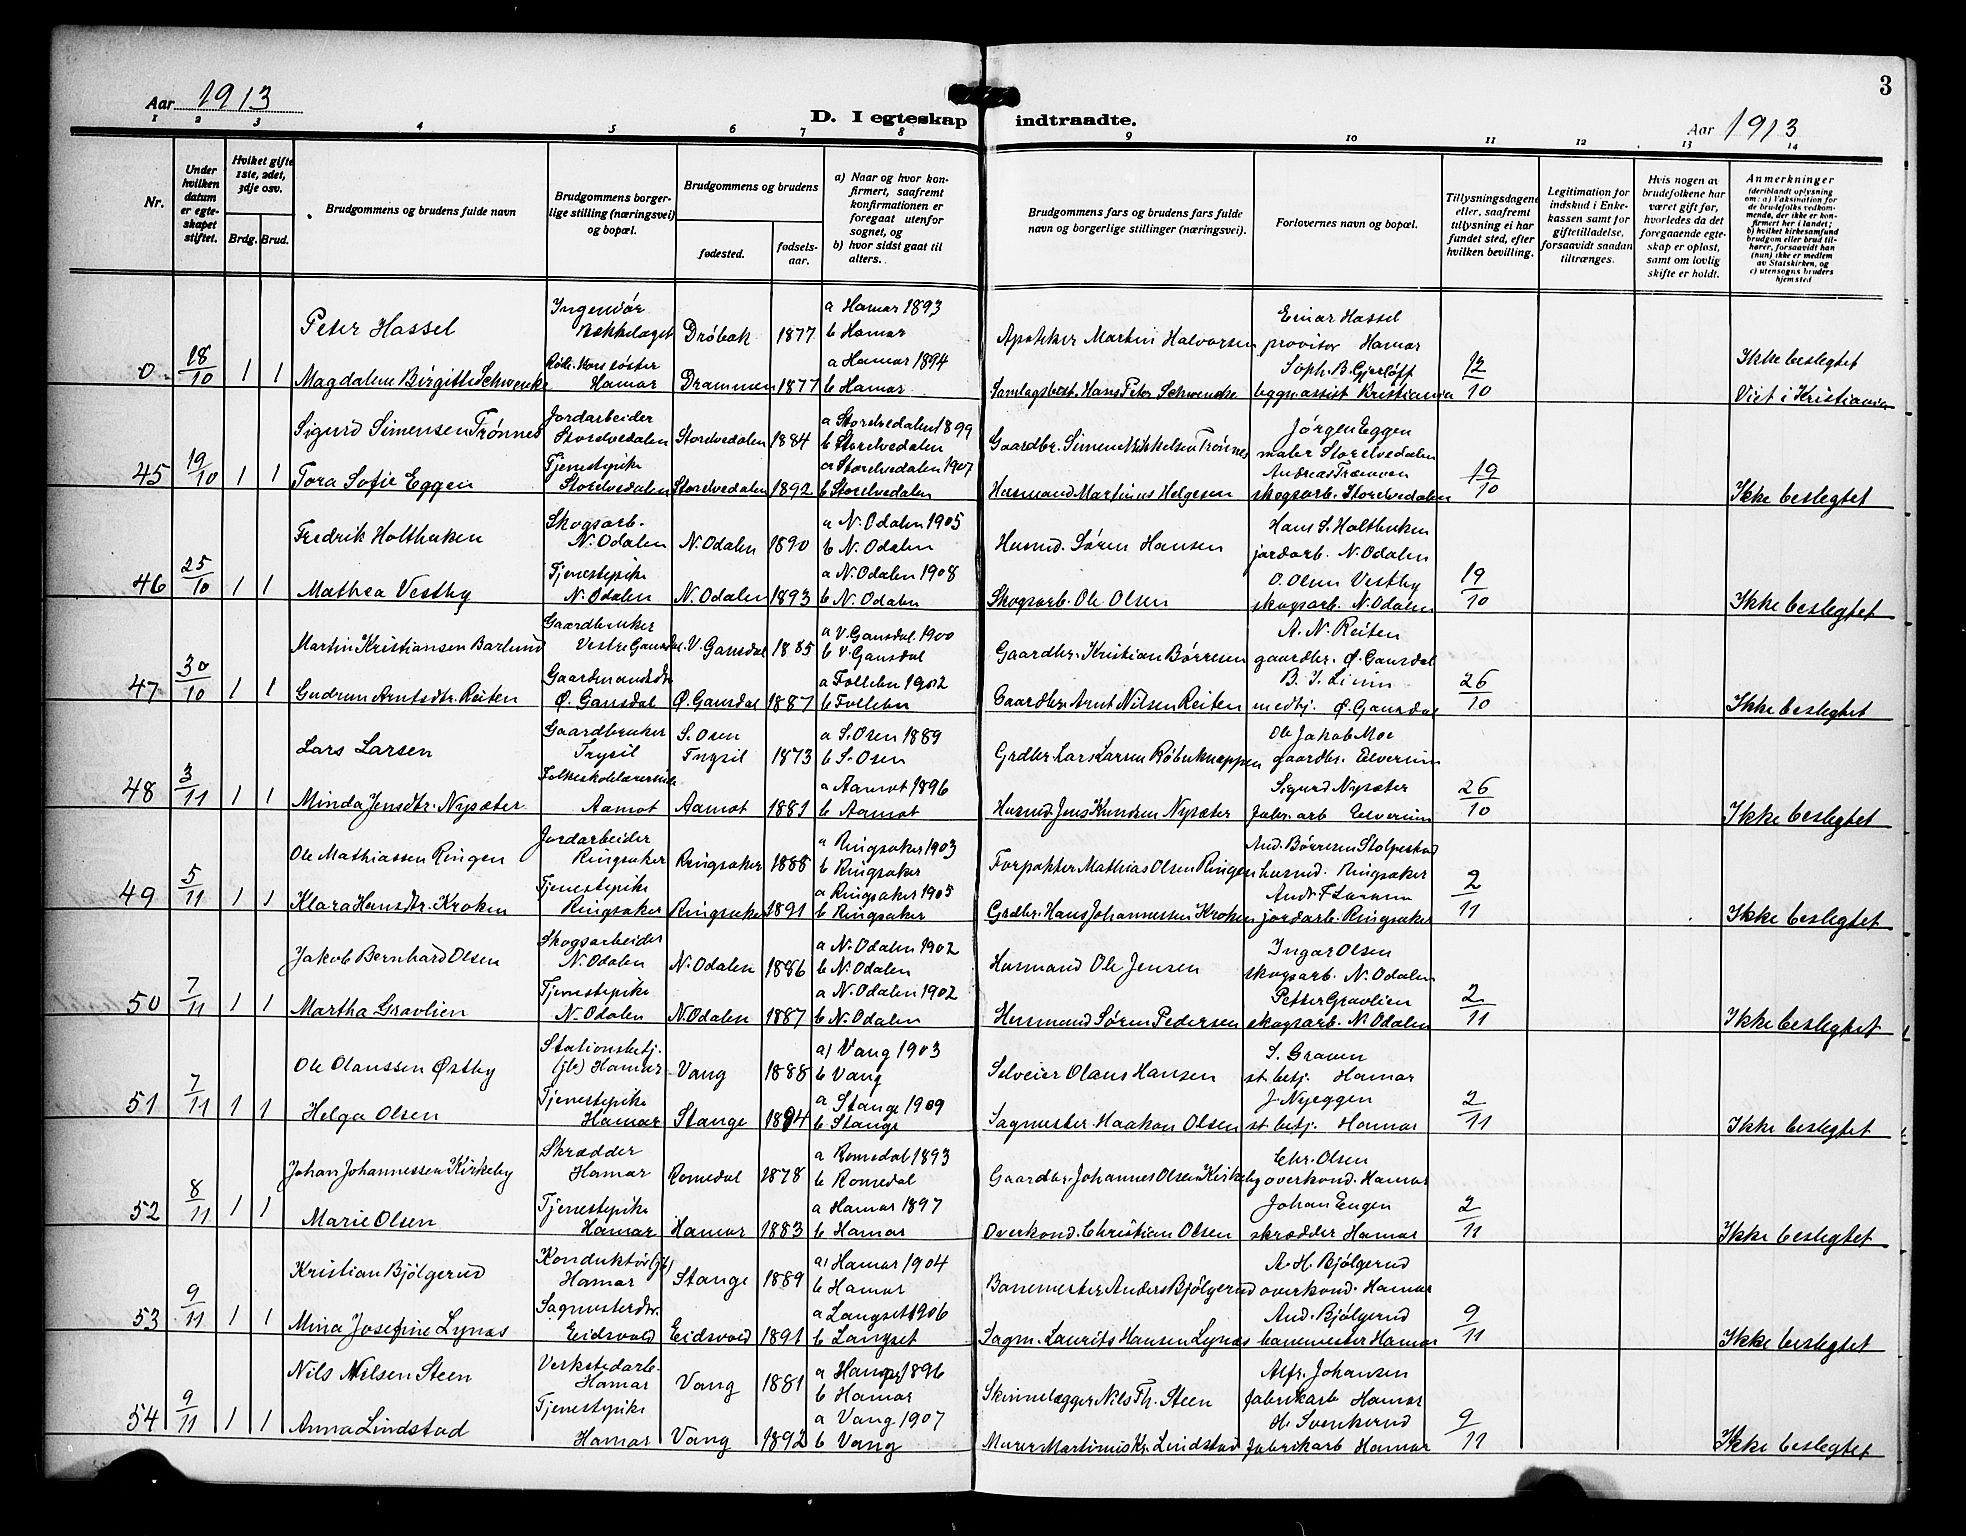 3
Aar 1913
D. I egteskap indtraadte.
Aar 1913
1 2 3 4 5 6 7 8 9 10 11 12 13 14
Nr.
Under hvilken datum er egteskapet stiftet.
Hvilket gifte 1ste, 2det, 3dje osv.
Brdg. Brud.
Brudgommens og brudens fulde navn
Brudgommens borgerlige stilling (næringsvei) og bopæl.
Brudgommens og brudens
fødested. fødselsaar.
a) Naar og hvor konfirmert, saafremt konfirmationen er foregaat utenfor sognet, og
b) hvor sidst gaat til alters.
Brudgommens fars og brudens fars fulde navn og borgerlige stillinger (næringsvei).
Forlovernes navn og bopæl.
Tillysningsdagene eller, saafremt tillysning ei har fundet sted, efter hvilken bevilling.
Legitimation for indskud i Enkekassen samt for giftetilladelse, forsaavidt saadan tiltrænges.
Hvis nogen av brudefolkene har været gift før, hvorledes da det foregaaende egteskap er opløst, samt om lovlig skifte er holdt.
Anmerkninger
(deriblandt oplysning om: a) Vaksination for de brudefolks vedkommende, der ikke er konfirmert her i landet; b) hvilket kirkesamfund brudgom eller brud tilhører, forsaavidt han (hun) ikke er medlem av Statskirken, og c) utensogns bruders hjemsted
Peter Hassel Ingeniør Bækkelaget Drøbak 1877 a Hamar 1893 b Hamar Apotheker Martin Halvorsen Einar Hassel provisor Hamar
0 18/10 1 1 Magdalene Birgitte Schwenke Røde Kors søster Hamar Drammen 1877 a Hamar 1894 b Hamar Samlagsbest. Hans Peter Schwenke Soph. B. Gjerløff bygn.assist Kristiania 12/10 Ikke beslegtet Viet i Kristiania
Sigurd Simensen Trønnes Jordarbeider Storelvedalen Storelvedalen 1884 a Storelvedalen 1899 b Storelvedalen Gaardbr. Simen Mikkelsen Trønnes Jørgen Eggen maler Storelvedalen
45 19/10 1 1 Tora Sofie Eggen Tjenestepike Storelvedalen Storelvedalen 1892 a Storelvedalen 1907 b Storelvedalen Husmand Martinus Helgesen Andreas skogsarb. Storelvedalen 19/10 Ikke beslegtet
Fredrik Holthuken Skogsarb. N. Odalen N. Odalen 1890 a N. Odalen 1905 b N. Odalen Husmd. Søren Hansen Hans S. Holthuken jordarb. N. Odalen
46 25/10 1 1 Mathea Vestby Tjenestepike N. Odalen N. Odalen 1893 a N. Odalen 1908 b N. Odalen Skogsarb. Ole Olsen O. Olsen Vestby skogsarb. N. Odalen 19/10 Ikke beslegtet
Martin Kristiansen Barlund Gaardbruker Vestre Gausdal V. Gausdal 1885 a V. Gausdal 1900 b V. Gausdal Gaardbr. Kristian Børresen A. N. Reiten gaardbr. Ø. Gausdal
47 30/10 1 1 Gudrun Arntsdtr. Reiten Gaardmandsdtr Ø. Gausdal Ø. Gausdal 1887 a Follebu 1902 b Follebu Gaardbr. Arnt Nilsen Reiten B. J. medhj. Ø. Gausdal 26/10 Ikke beslegtet
Lars Larsen Gaardbruker Trysil S. Osen Trysil 1873 a S. Osen 1889 b S. Osen Grdbr. Lars Larsen Røbuknappen Ole Jakob Moe gaardbr. Elverum
48 3/11 1 1 Minda Jensdtr. Nysæter Folkeskolelærerinde Aamot Aamot 1881 a Aamot 1896 b Aamot Husmd. Jens Knudsen Nysæter Sigurd Nysæter fabr.arb Elverum 26/10 Ikke beslegtet
Ole Mathiassen Ringen Jordarbeider Ringsaker Ringsaker 1888 a Ringsaker 1903 b Ringsaker Forpakter Mathias Olsen Ringen And. Børresen Stolpestad husmd. Ringsaker
49 5/11 1 1 Klara Hansdtr. Kroken Tjenestepike Ringsaker Ringsaker 1891 a Ringsaker 1905 b Ringsaker Grdbr. Hans Johannessen Kroken Andr. F Larsen jordarb. Ringsaker 2/11 Ikke beslegtet
Jakob Bernhard Olsen Skogsarbeider N. Odalen N. Odalen 1886 a N. Odalen 1902 b N. Odalen Husmand Ole Jensen Ingar Olsen skogsarb. N. Odalen
50 7/11 1 1 Martha Gravlien Tjenestepike N. Odalen N. Odalen 1887 a N. Odalen 1902 b N. Odalen Husmand Søren Pedersen Petter Gravlien skogsarb. N. Odalen 2/11 Ikke beslegtet
Ole Olaussen Østby Stationsbetj. (jb) Hamar Vang 1888 a) Vang 1903 b Vang Selveier Olaus Hansen S. Graven st. betj. Hamar
51 7/11 1 1 Helga Olsen Tjenestepike Hamar Stange 1894 a Stange 1909 b Stange Sagmester Haakon Olsen J. Nyeggen st. betj. Hamar 2/11 Ikke beslegtet
Johan Johannessen Kirkeby Skrædder Hamar Romedal 1878 a Romedal 1893 b Romedal Gaardbr. Johannes Olsen Kirkeby Chr. Olsen overkond. Hamar
52 8/11 1 1 Marie Olsen Tjenestepike Hamar Hamar 1883 a Hamar 1897 b Hamar Overkond. Christian Olsen Johan Engen skrædder Hamar 2/11 Ikke beslegtet
Kristian Bjølgerud Konduktør (jb) Hamar Stange 1889 a) Hamar 1904 b Hamar Banemester Anders Bjølgerud A. H. Bjølgerud overkond. Hamar
53 9/11 1 1 Mina Josefine Lynæs Sagmesterdtr. Eidsvold Eidsvold 1891 a Langset 1906 b Langset Sagm. Laurits Hansen Lynæs And. Bjølgerud banemester Hamar 9/11 Ikke beslegtet
Nils Nilsen Steen Verkstedarb. Hamar Vang 1881 a Hamar 1896 b Hamar Skinnelægger Nils Th. Steen Alfr. Johansen fabrikarb Hamar
54 9/11 1 1 Anna Lindstad Tjenestepike Hamar Vang 1892 a Vang 1907 b Vang Murer Martinius Kr. Lindstad H. Svenkerud fabrikarb Hamar 9/11 Ikke beslegtet